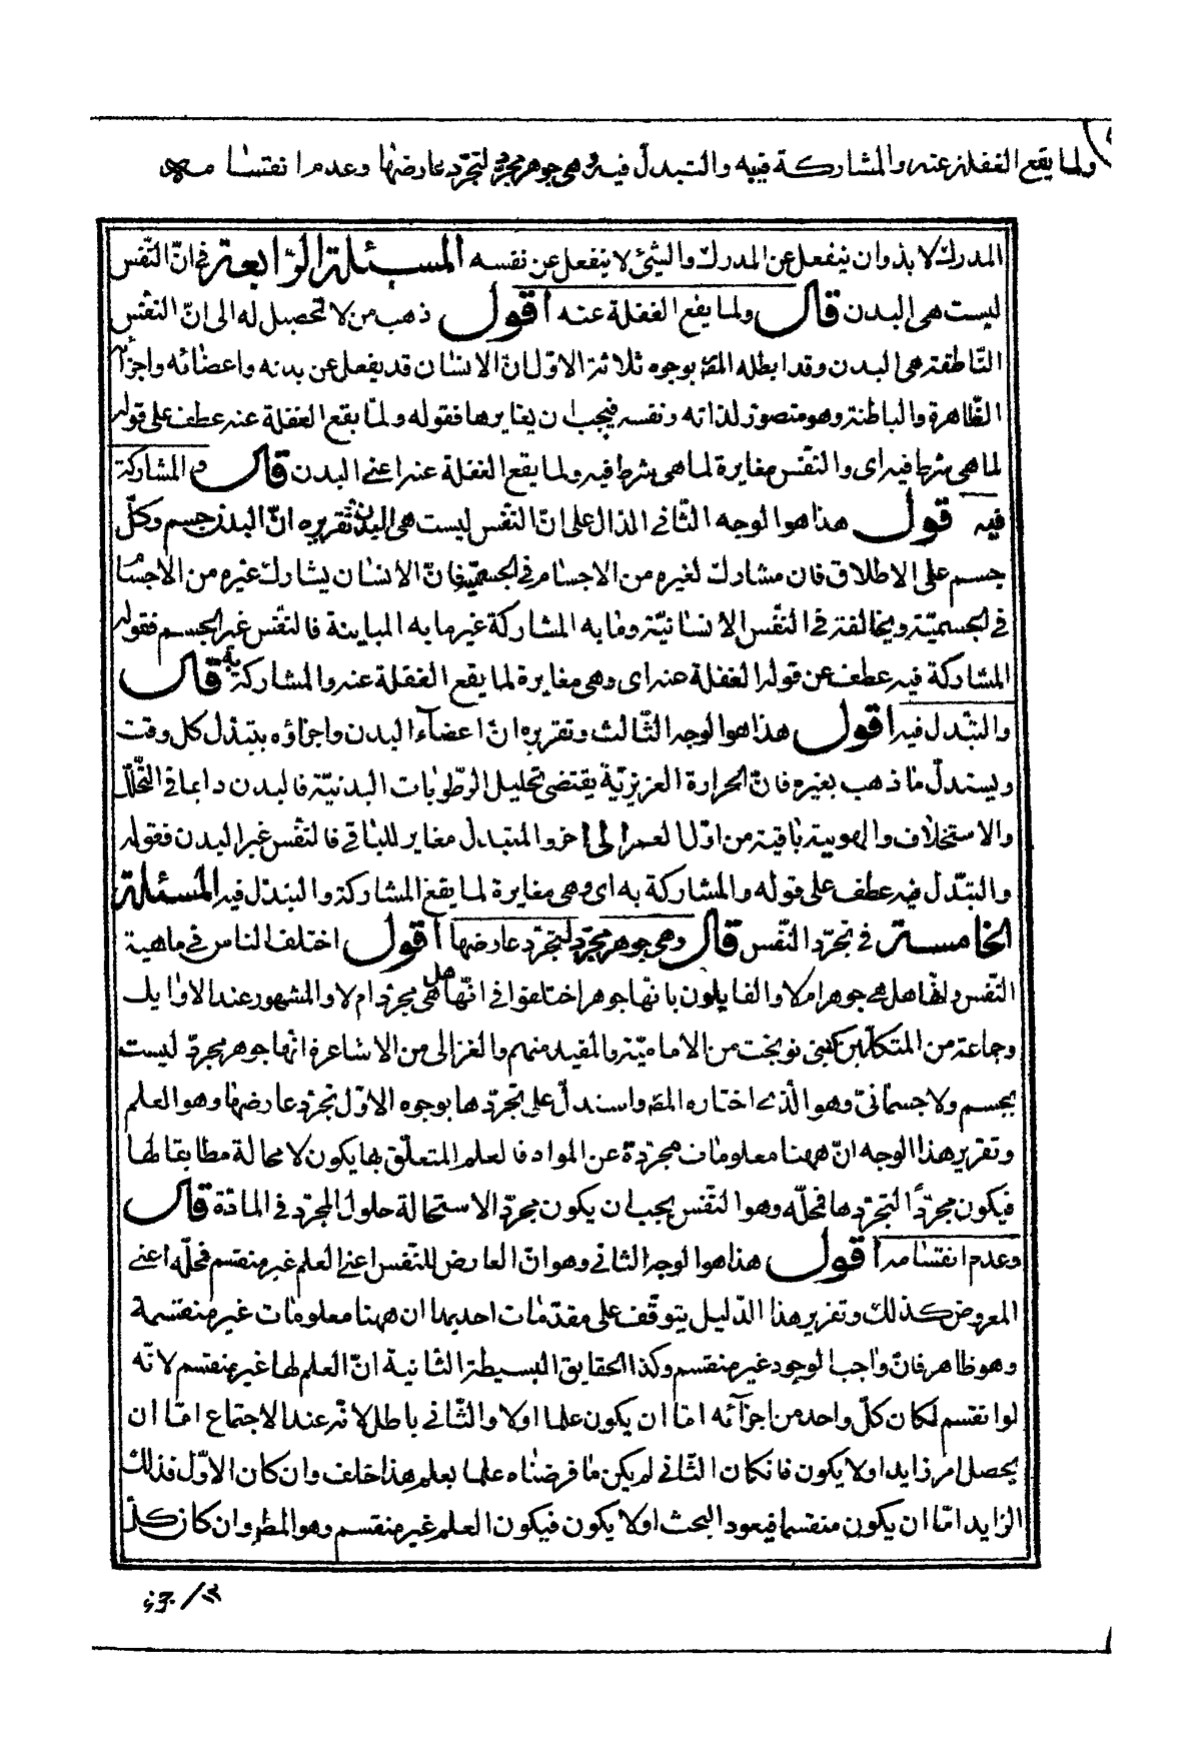 ولما يقع الغفلة عنه والمشاركة فيه والتبدل فيه وهى جوهر مجرد لتجرد عارضها وعدم انقسامه
المدرك لا بد وان ينفعل عن المدرك والشئ لا ينفعل عن نفسه المسئلة الرابعة فى انّ النّفس
ليست هى البدن قال ولما يقع الغفلة عنه اقول ذهب من لا تحصيل له الى انّ النفس
النّاطقة هى البدن وقد ابطله المص بوجوه ثلاثة الاوّل انّ الانسان قد يغفل عن بدنه واعضائه واجزائه
الظّاهرة والباطنة وهو متصوّر لذاته ونفسه فيجب ان يغايرها فقوله ولمّا يقع الغفلة عنه عطف على قوله
لما هى شرط فيه اى والنّفس مغايرة لما هى شرط فيه ولما يقع الغفلة عنه اعنى البدن قال والمشاركة
فيه قول هذا هو الوجه الثّانى الدّال على انّ النّفس ليست هى البدن وتقريره انّ البدن جسم وكلّ
جسم على الاطلاق فان مشارك لغيره من الاجسام فى الجسمية فانّ الانسان يشارك غيره من الاجسام
فى الجسميّة ويخالفه فى النّفس الانسانيّة وما به المشاركة غير ما به المباينة فالنّفس غير الجسم فقوله
المشاركة فيه عطف عن قوله الغفلة عنه اى وهى مغايرة لما يقع الغفلة عنه والمشاركة به قال
والتبّدل فيه اقول هذا هو الوجه الثّالث وتقريره انّ اعضآء البدن واجزاؤه يتبدّل كل وقت
ويستدلّ ما ذهب بغيره فانّ الحرارة الغريزيّة يقتضى تحليل الرّطوبات البدنيّة فالبدن دايما فى التّحلّل
والاستخلاف والهوية باقية من اوّل العمر الى اخره والمتبدل مغاير للباقى فالنّفس غير البدن فقوله
والتبّدل فيه عطف على قوله والمشاركة به اى وهى مغايرة لما يقع المشاركة والتبدّل فيه المسئلة
الخامسة فى تجرّد النّفس قال وهى جوهر مجرّد لتجرّد عارضها اقول اختلف الناس فى ماهية
النّفس وانّها هل هى جوهر ام لا والقايلون بانّها جوهر اختلفوا فى انّها هل هى مجرّد ام لا والمشهور عند الاوايل
وجماعة من المتكلّمين كبنى نوبخت من الاماميّة والمفيد منهم والغزالى من الاشاعرة انّها جوهر مجرّد ليست
بجسم ولا جسمانىّ وهو الّذى اختاره المص واستدلّ على تجرّدها بوجوه الاوّل تجرّد عارضها وهو العلم
وتقرير هذا الوجه انّ ههنا معلومات مجرّدة عن المواد فالعلم المتعلّق بها يكون لا محالة مطابقا لها
فيكون مجرّدًا لتجرّدها فمحلّه وهو النّفس يجب ان يكون مجرّدا لاستحالة حلول المجرّد فى المادّة قال
وعدم انقسامه اقول هذا هو الوجه الثانى وهو انّ العارض للنّفس اعنى العلم غير منقسم فمحلّه اعنى
المعروض كذلك وتقرير هذا الدّليل يتوقّف على مقدّمات احديها ان ههنا معلومات غير منقسمة
وهو ظاهر فانّ واجب الوجود غير منقسم وكذا الحقايق البسيطة الثّانية انّ العلم لها غير منقسم لانّه
لو انقسم لكان كلّ واحد من اجزآئه امّا ان يكون علما اولا والثّانى باطل لانّه عند الاجتماع امّا ان
يحصل امر زايد اولا يكون فان كان الثّانى لم يكن ما فرضناه علما بعلم هذا خلف وان كان الاوّل فذلك
الزايد امّا ان يكون منقسما فيعود البحث اولا يكون فيكون العلم غير منقسم وهو المط وان كان كلّ